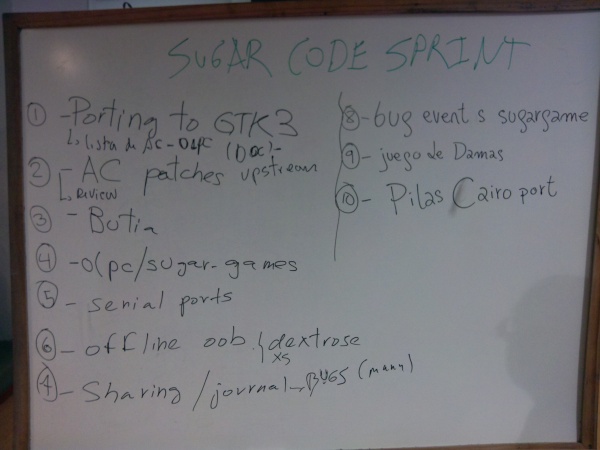 SUGAR CODE SPRINT
① -Porting to GTK3
↳ lista de AC-OLPC (DOC)-
② - AC patches upstream
↳ REVIEW
③ - Butia
④ -olpc/sugar-games
⑤ - serial ports
⑥ - offline oob / dextrose
XS
④ - Sharing / journal - BUGS (many)
⑧ - bug event s sugargame
⑨ - juego de Damas
⑩ - Pilas Cairo port